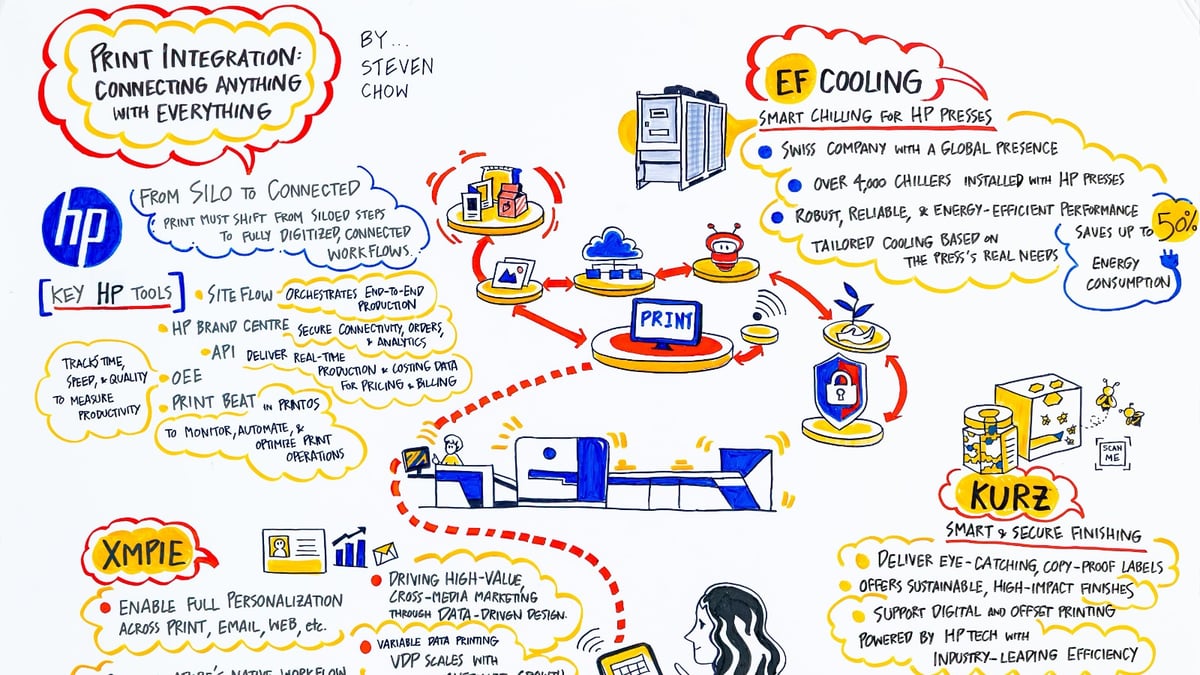 PRINT INTEGRATION:
CONNECTING ANYTHING
WITH EVERYTHING
BY...
STEVEN
CHOW
hp
FROM SILO TO CONNECTED
PRINT MUST SHIFT FROM SILOED STEPS
TO FULLY DIGITIZED, CONNECTED
WORKFLOWS.
[KEY HP TOOLS]
SITE FLOW
ORCHESTRATES END-TO-END
PRODUCTION
HP BRAND CENTRE
SECURE CONNECTIVITY, ORDERS,
& ANALYTICS
API
DELIVER REAL-TIME
PRODUCTION & COSTING DATA
FOR PRICING & BILLING
OEE
TRACKS TIME,
SPEED, & QUALITY
TO MEASURE
PRODUCTIVITY
PRINT BEAT IN PRINTOS
TO MONITOR, AUTOMATE, &
OPTIMIZE PRINT
OPERATIONS
PRINT
EF COOLING
SMART CHILLING FOR HP PRESSES
SWISS COMPANY WITH A GLOBAL PRESENCE
OVER 4,000 CHILLERS INSTALLED WITH HP PRESSES
ROBUST, RELIABLE, & ENERGY-EFFICIENT PERFORMANCE
TAILORED COOLING BASED ON
THE PRESS'S REAL NEEDS
SAVES UP TO 50%
ENERGY
CONSUMPTION
SCAN
ME
KURZ
SMART & SECURE FINISHING
DELIVER EYE-CATCHING, COPY-PROOF LABELS
OFFERS SUSTAINABLE, HIGH-IMPACT FINISHES
SUPPORT DIGITAL AND OFFSET PRINTING
POWERED BY HP TECH WITH
INDUSTRY-LEADING EFFICIENCY
XMPIE
ENABLE FULL PERSONALIZATION
ACROSS PRINT, EMAIL, WEB, etc.
NATIVE WORKFLOW
DRIVING HIGH-VALUE,
CROSS-MEDIA MARKETING
THROUGH DATA-DRIVEN DESIGN.
VARIABLE DATA PRINTING
VDP SCALES WITH